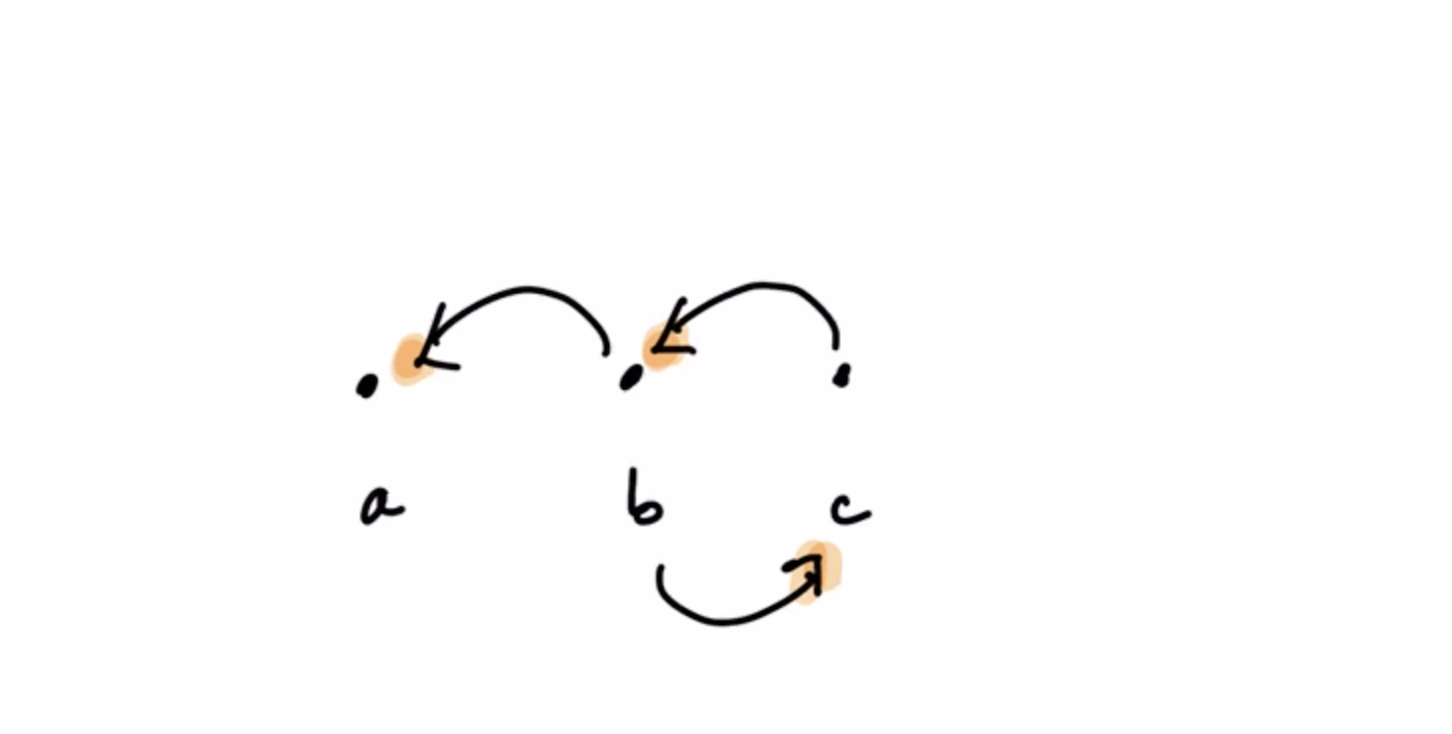 a b c